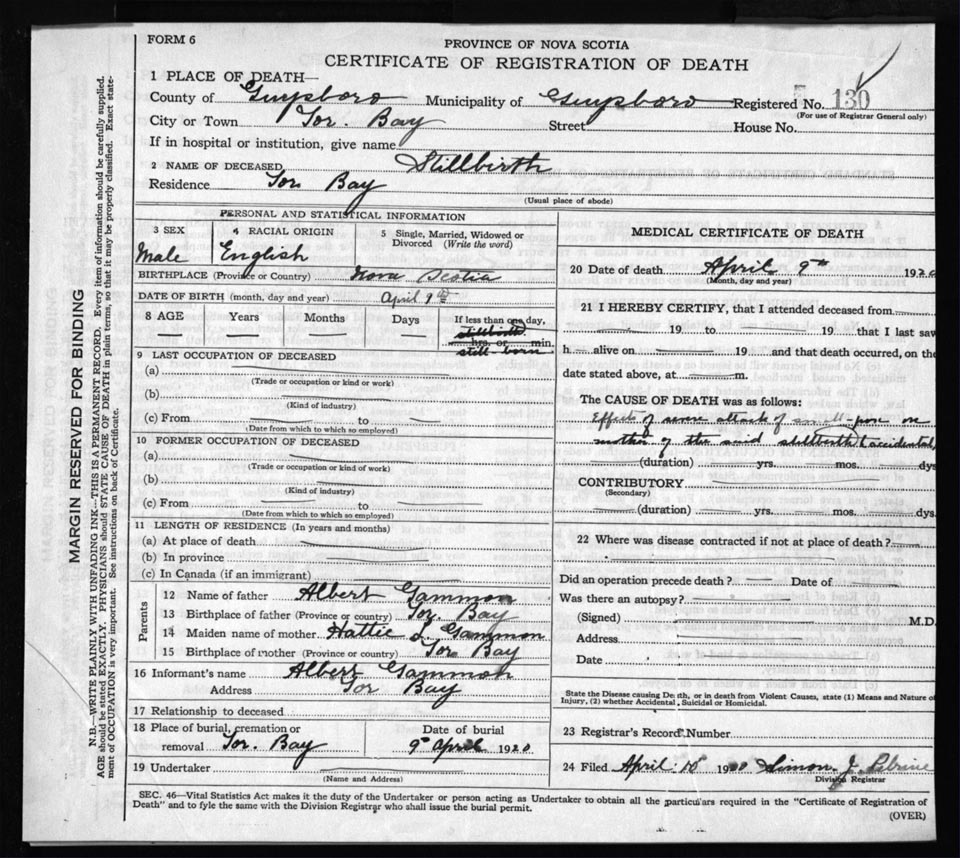 FORM 6
PROVINCE OF NOVA SCOTIA
CERTIFICATE OF REGISTRATION OF DEATH
1 PLACE OF DEATH—
County of Guysboro Municipality of Guysboro Registered No. 130
(For use of Registrar General only)
City or Town Tor. Bay Street House No.
If in hospital or institution, give name
2 NAME OF DECEASED Stillbirth
Residence Tor Bay
(Usual place of abode)
PERSONAL AND STATISTICAL INFORMATION
3 SEX 4 RACIAL ORIGIN 5 Single, Married, Widowed or Divorced (Write the word)
Male English
BIRTHPLACE (Province or Country) Nova Scotia
DATE OF BIRTH (month, day and year) April 9th
8 AGE Years Months Days If less than one day,
stillbirth
hrs. or min.
still-born
9 LAST OCCUPATION OF DECEASED
(a)
(Trade or occupation or kind or work)
(b)
(Kind of industry)
(c) From to
(Date from which to which so employed)
10 FORMER OCCUPATION OF DECEASED
(a)
(Trade or occupation or kind of work)
(b)
(Kind of industry)
(c) From to
(Date from which to which so employed)
11 LENGTH OF RESIDENCE (In years and months)
(a) At place of death
(b) In province
(c) In Canada (if an immigrant)
Parents
12 Name of father Albert Gammon
13 Birthplace of father (Province or country) Tor. Bay
14 Maiden name of mother Hattie L. Gammon
15 Birthplace of mother (Province or country) Tor Bay
16 Informant's name Albert Gammon
Address Tor Bay
17 Relationship to deceased
18 Place of burial, cremation or removal Tor. Bay
Date of burial
9th April 1920
19 Undertaker
(Name and Address)
MEDICAL CERTIFICATE OF DEATH
20 Date of death April 9th 1920
(Month, day and year)
21 I HEREBY CERTIFY, that I attended deceased from
19 to 19 that I last saw
h alive on 19 and that death occurred, on the
date stated above, at m.
The CAUSE OF DEATH was as follows:
Effects of some attack of small-pox on
mother of the said stillbirth (accidental)
(duration) yrs. mos. dys
CONTRIBUTORY
(Secondary)
(duration) yrs. mos. dys.
22 Where was disease contracted if not at place of death?
Did an operation precede death? Date of
Was there an autopsy?
(Signed) M.D.
Address
Date
State the Disease causing Death, or in death from Violent Causes, state (1) Means and Nature of
Injury, (2) whether Accidental, Suicidal or Homicidal.
23 Registrar's Record Number
24 Filed April 10th 19 Simon J.
Division Registrar
SEC. 46—Vital Statistics Act makes it the duty of the Undertaker or person acting as Undertaker to obtain all the particulars required in the "Certificate of Registration of
Death" and to fyle the same with the Division Registrar who shall issue the burial permit.
(OVER)
MARGIN RESERVED FOR BINDING
N.B.—WRITE PLAINLY WITH UNFADING INK—THIS IS A PERMANENT RECORD. Every item of information should be carefully supplied.
AGE should be stated EXACTLY. PHYSICIANS should STATE CAUSE OF DEATH in plain terms, so that it may be properly classified. Exact state-
ment of OCCUPATION is very important. See instructions on back of Certificate.